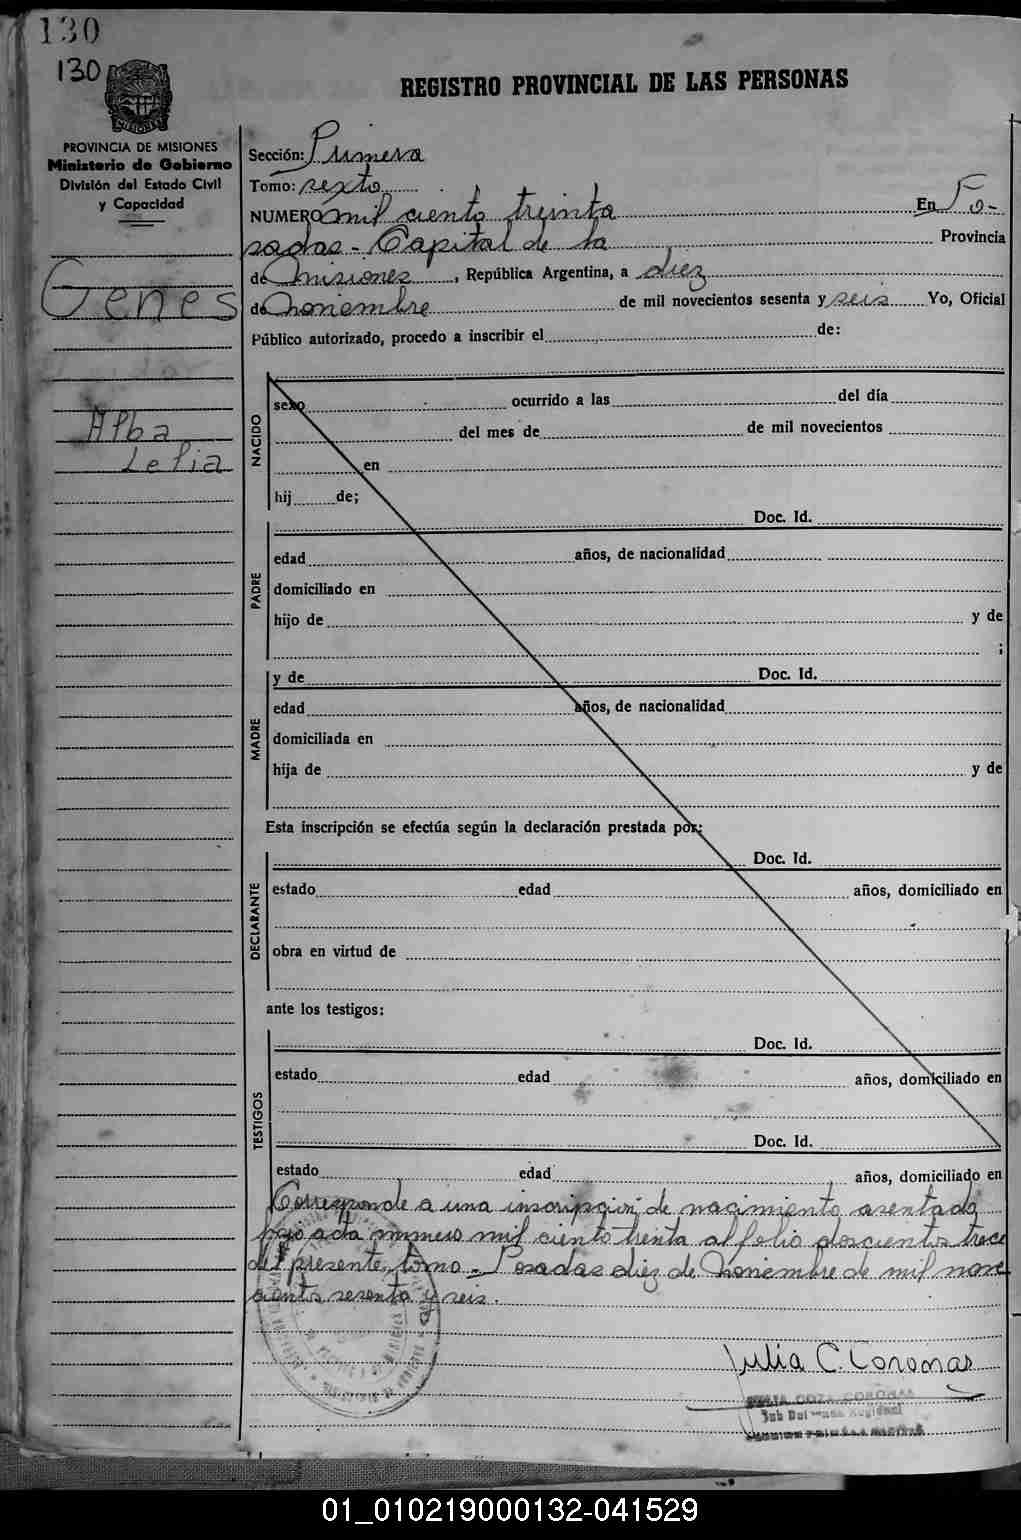 130
130
MISIONES
PROVINCIA DE MISIONES
Ministerio de Gobierno
División del Estado Civil
y Capacidad
Genes
Alba
Lelia
REGISTRO PROVINCIAL DE LAS PERSONAS
Sección: Primera
Tomo: sexto
NUMERO mil ciento treinta En Po-
sadas - Capital de la Provincia
de Misiones, República Argentina, a diez
de Noviembre de mil novecientos sesenta y seis Yo, Oficial
Público autorizado, procedo a inscribir el de:
NACIDO
sexo ocurrido a las del día
del mes de de mil novecientos
en
hij de;
Doc. Id.
PADRE
edad años, de nacionalidad
domiciliado en
hijo de y de
;
MADRE
y de Doc. Id.
edad años, de nacionalidad
domiciliada en
hija de y de
Esta inscripción se efectúa según la declaración prestada por:
DECLARANTE
Doc. Id.
estado edad años, domiciliado en
obra en virtud de
ante los testigos:
TESTIGOS
Doc. Id.
estado edad años, domiciliado en
Doc. Id.
estado edad años, domiciliado en
Corresponde a una inscripción de nacimiento asentada
bajo acta número mil ciento treinta al folio doscientos trece
del presente, tomo - Posadas diez de Noviembre de mil nove
cientos sesenta y seis.
Julia C. Coronas
01_010219000132-041529